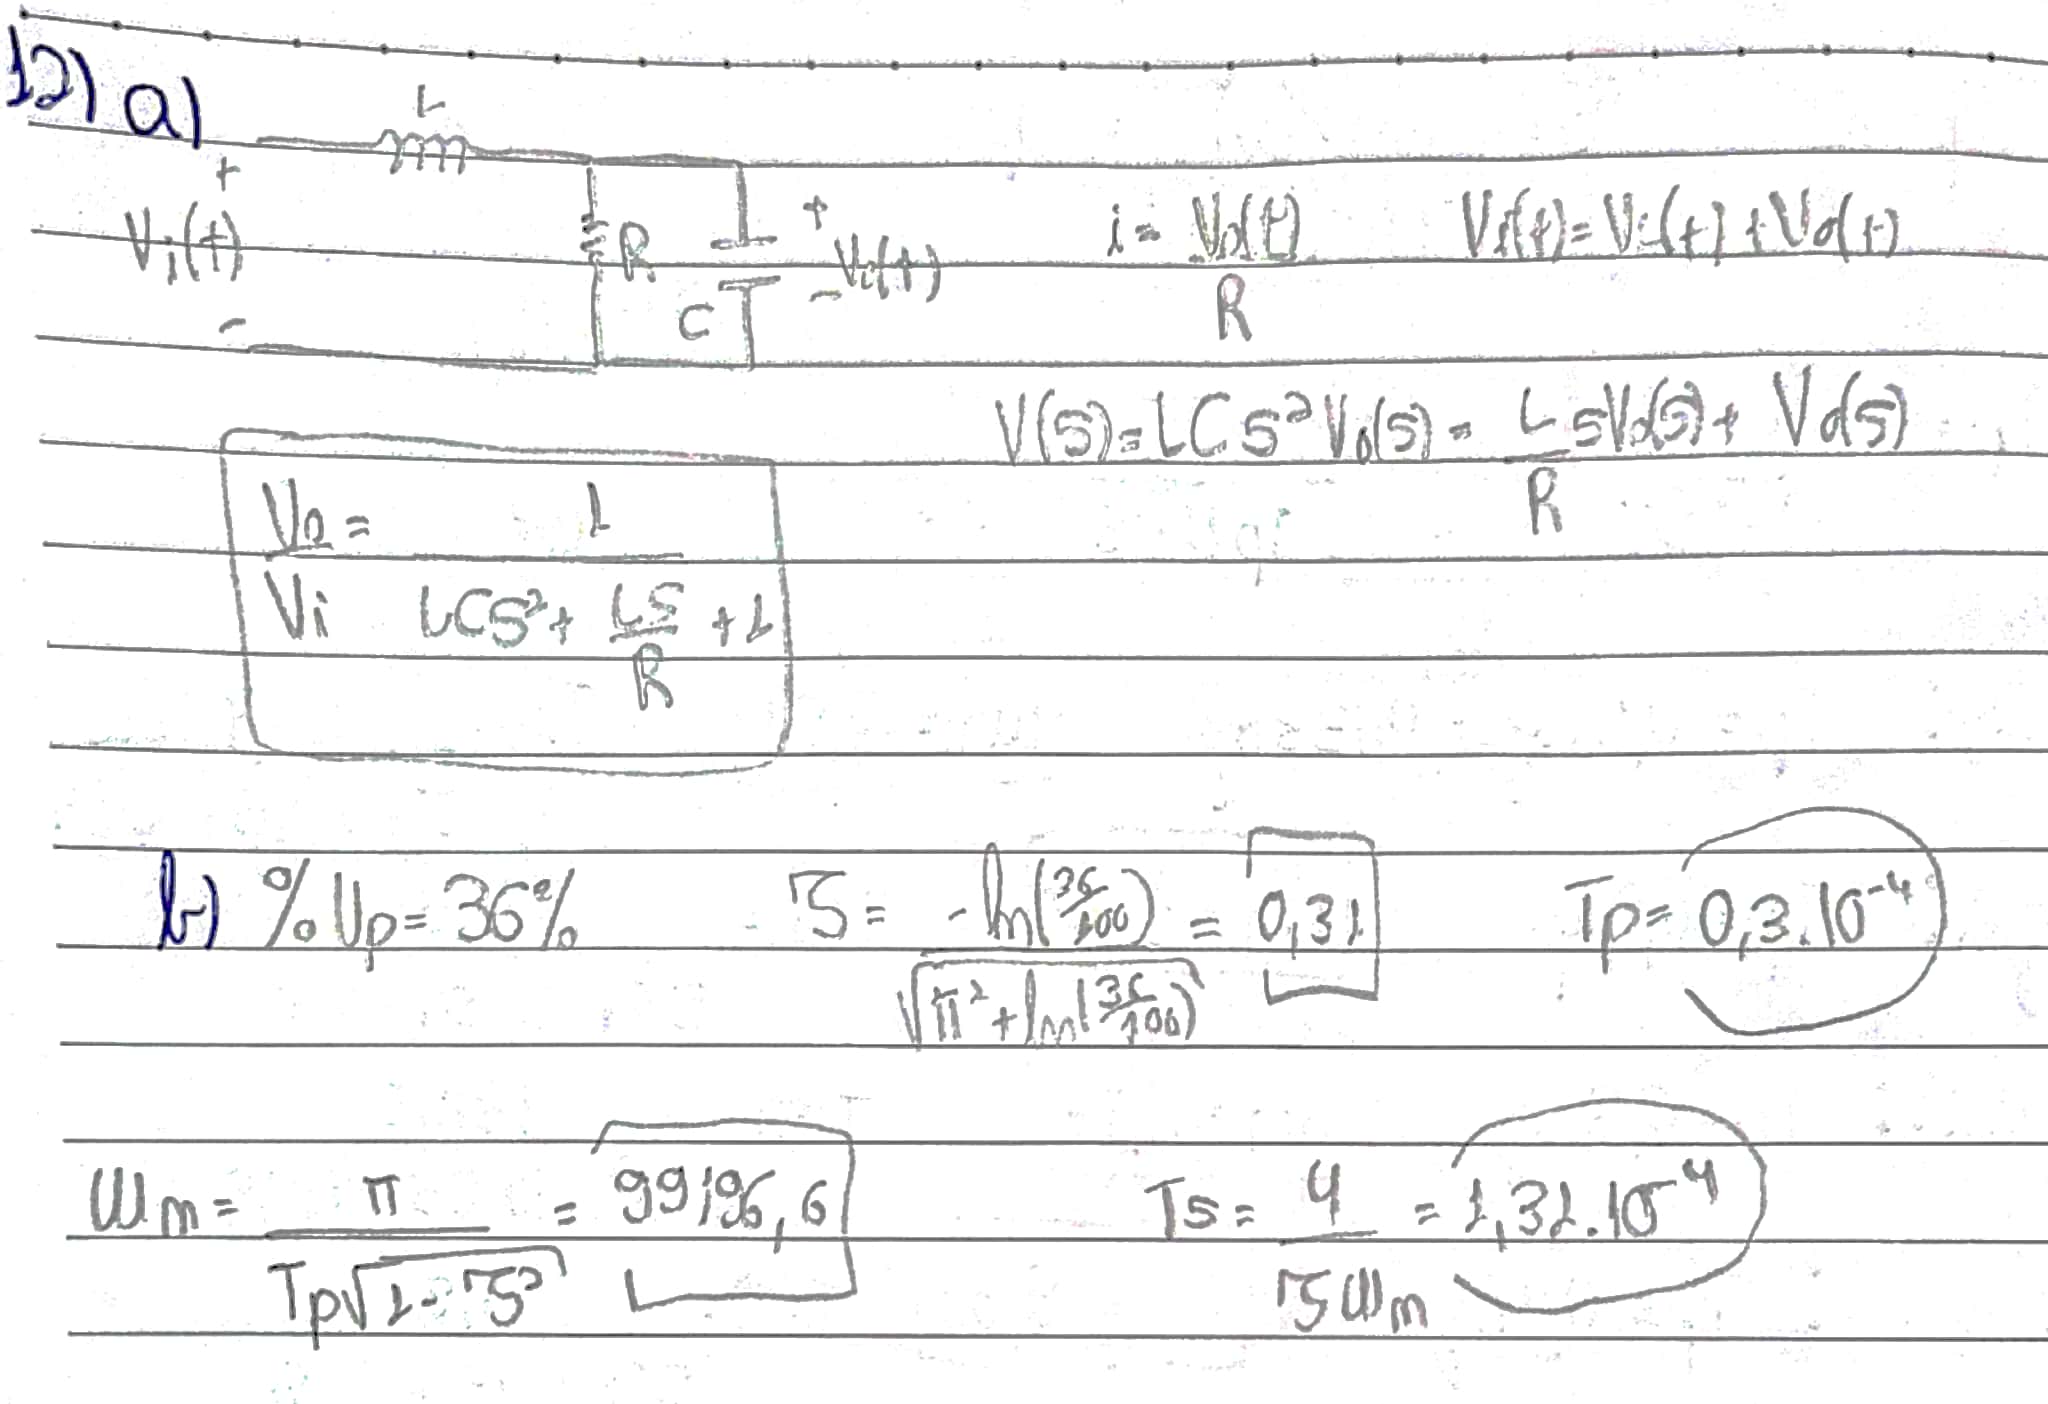 12) a)
L
+
Vi(t)
-
R
C
+
Vo(t)
-
i = Vo(t)/R Vi(t) = VL(t) + Vo(t)
V(s) = LCs²Vo(s) = L/R sVo(s) + Vo(s)
Vo/Vi = 1/(LCS² + LS/R + 1)
b) %Up = 36% ζ = -ln(36/100)/√(π² + ln(36/100)) = 0,31 Tp = 0,3.10⁻⁴
Wn = π/(Tp√(1-ζ²)) = 99196,6 Ts = 4/(ζWn) = 1,31.10⁻⁴